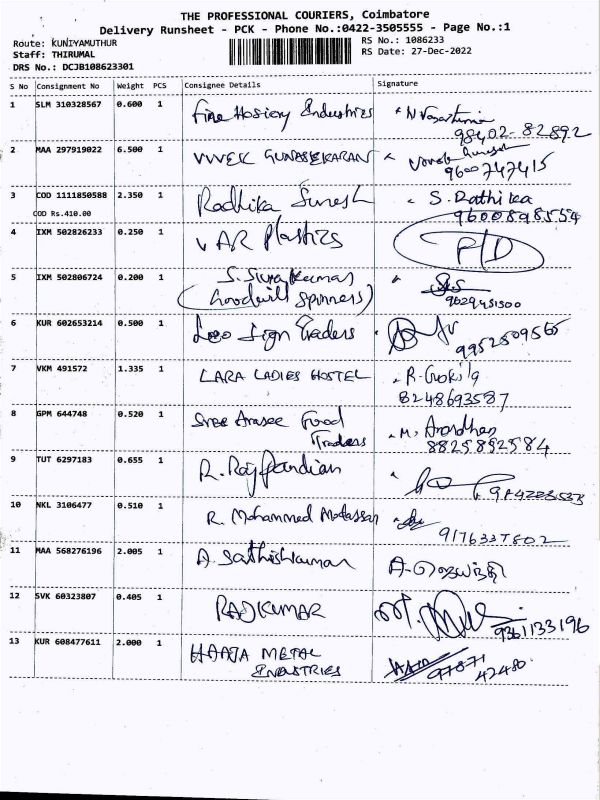 THE PROFESSIONAL COURIERS, Coimbatore
Delivery Runsheet - PCK - Phone No.:0422-3505555 - Page No.:1
Route: KUNIYAMUTHUR
RS No.: 1086233
Staff: THIRUMAL
RS Date: 27-Dec-2022
DRS No.: DCJB108623301
S No Consignment No Weight PCS Consignee Details Signature
1 SLM 310328567 0.600 1 Fine Hosiery Industries
98402-82892
2 MAA 297919022 6.500 1 VIVEK GUNASEKARAN
9600747415
3 COD 1111850588 2.350 1 Radhika Suresh S. Rathika
COD Rs.410.00 9600898554
4 IXM 502826233 0.250 1 VAR Plastics
5 IXM 502806724 0.200 1 S. Sivakumar
(Goodwill Spinners)
9629451500
6 KUR 602653214 0.500 1 Sign Traders
9952509565
7 VKM 491572 1.335 1 LARA LADIES HOSTEL R. Gokila
8248693587
8 GPM 644748 0.520 1 Sree Arasee Food
Traders M.
8825892584
9 TUT 6297183 0.655 1 R. Rajpandian
10 NKL 3106477 0.510 1 R. Mohammed
9176337802
11 MAA 568276196 2.005 1 A. Sathishkumar A. ஜெயந்தி
12 SVK 60323807 0.405 1 RAJKUMAR
9361133196
13 KUR 608477611 2.000 1 HAAJA METAL
INDUSTRIES
97871
42480